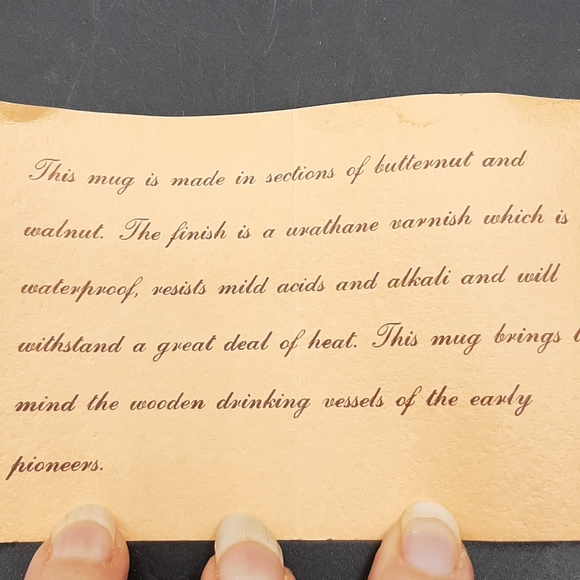 This mug is made in sections of butternut and
walnut. The finish is a urathane varnish which is
waterproof, resists mild acids and alkali and will
withstand a great deal of heat. This mug brings
mind the wooden drinking vessels of the early
pioneers.